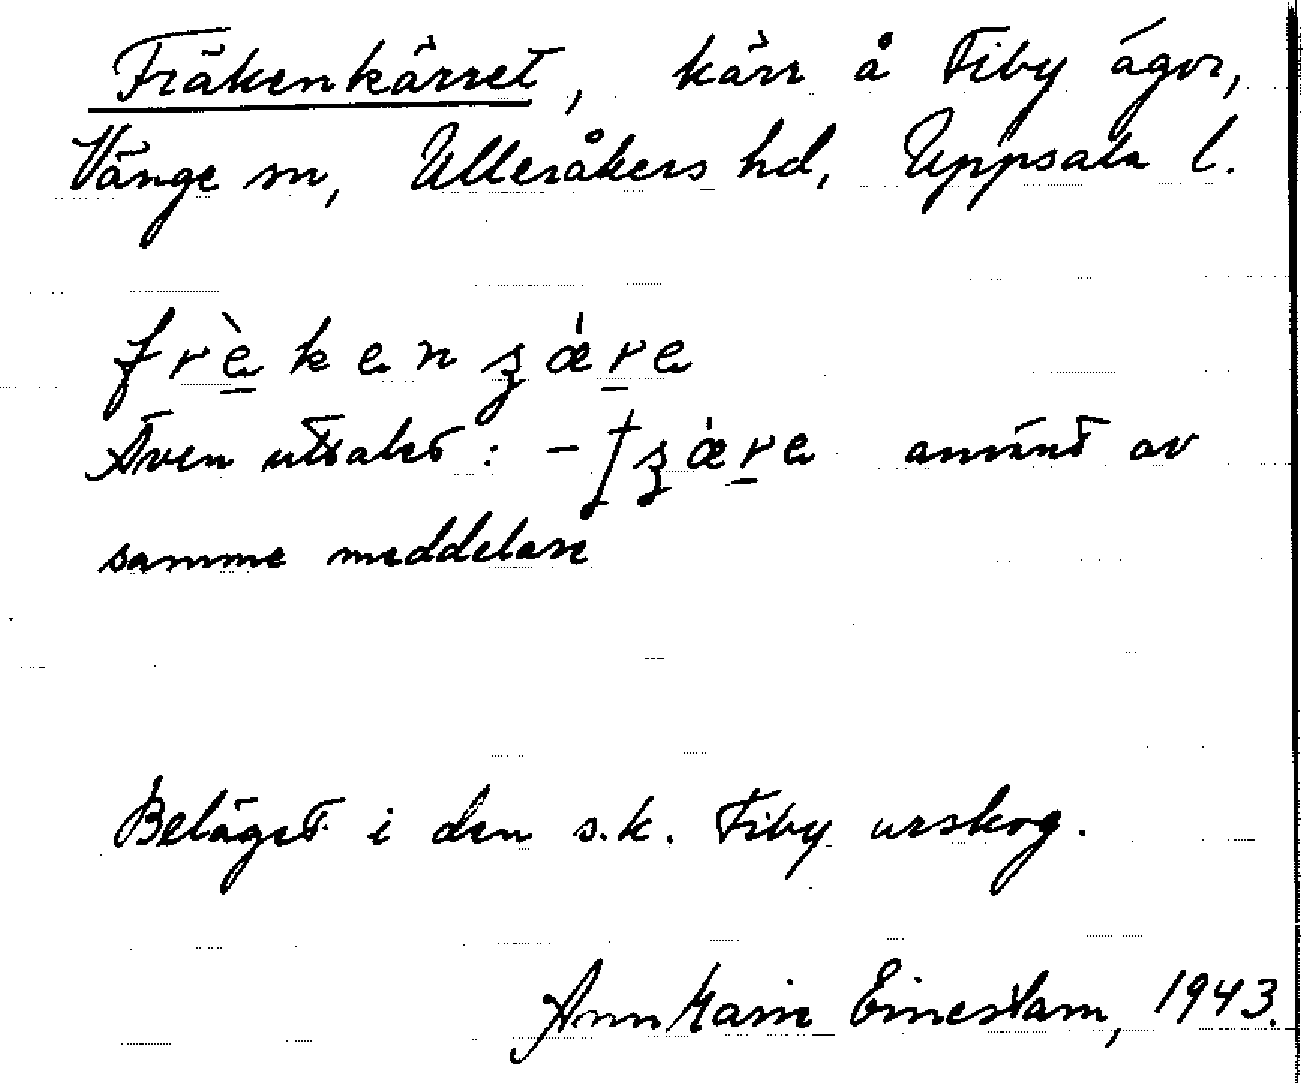 Fräkenkärret, kärr å Fiby ägor,
Vänge sn, Ulleråkers hd, Uppsala l.
frèkenʂǽre
Även uttalet: -tʂǽre använt av
samme meddelare
Beläget i den s.k. Fiby urskog.
Ann Marie Einestam, 1943.